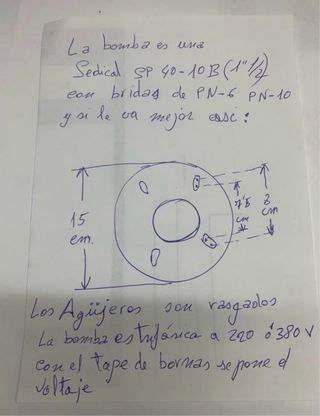 La bomba es una
Sedical SP 40-10B (1"1/2)
con bridas de PN-6 PN-10
y si le va mejor asi:
15
cm.
7'5
cm
8
cm
Los Agüjeros son rasgados
La bomba es trifásica a 220 ó 380 V
con el tape de bornas se pone el
voltaje